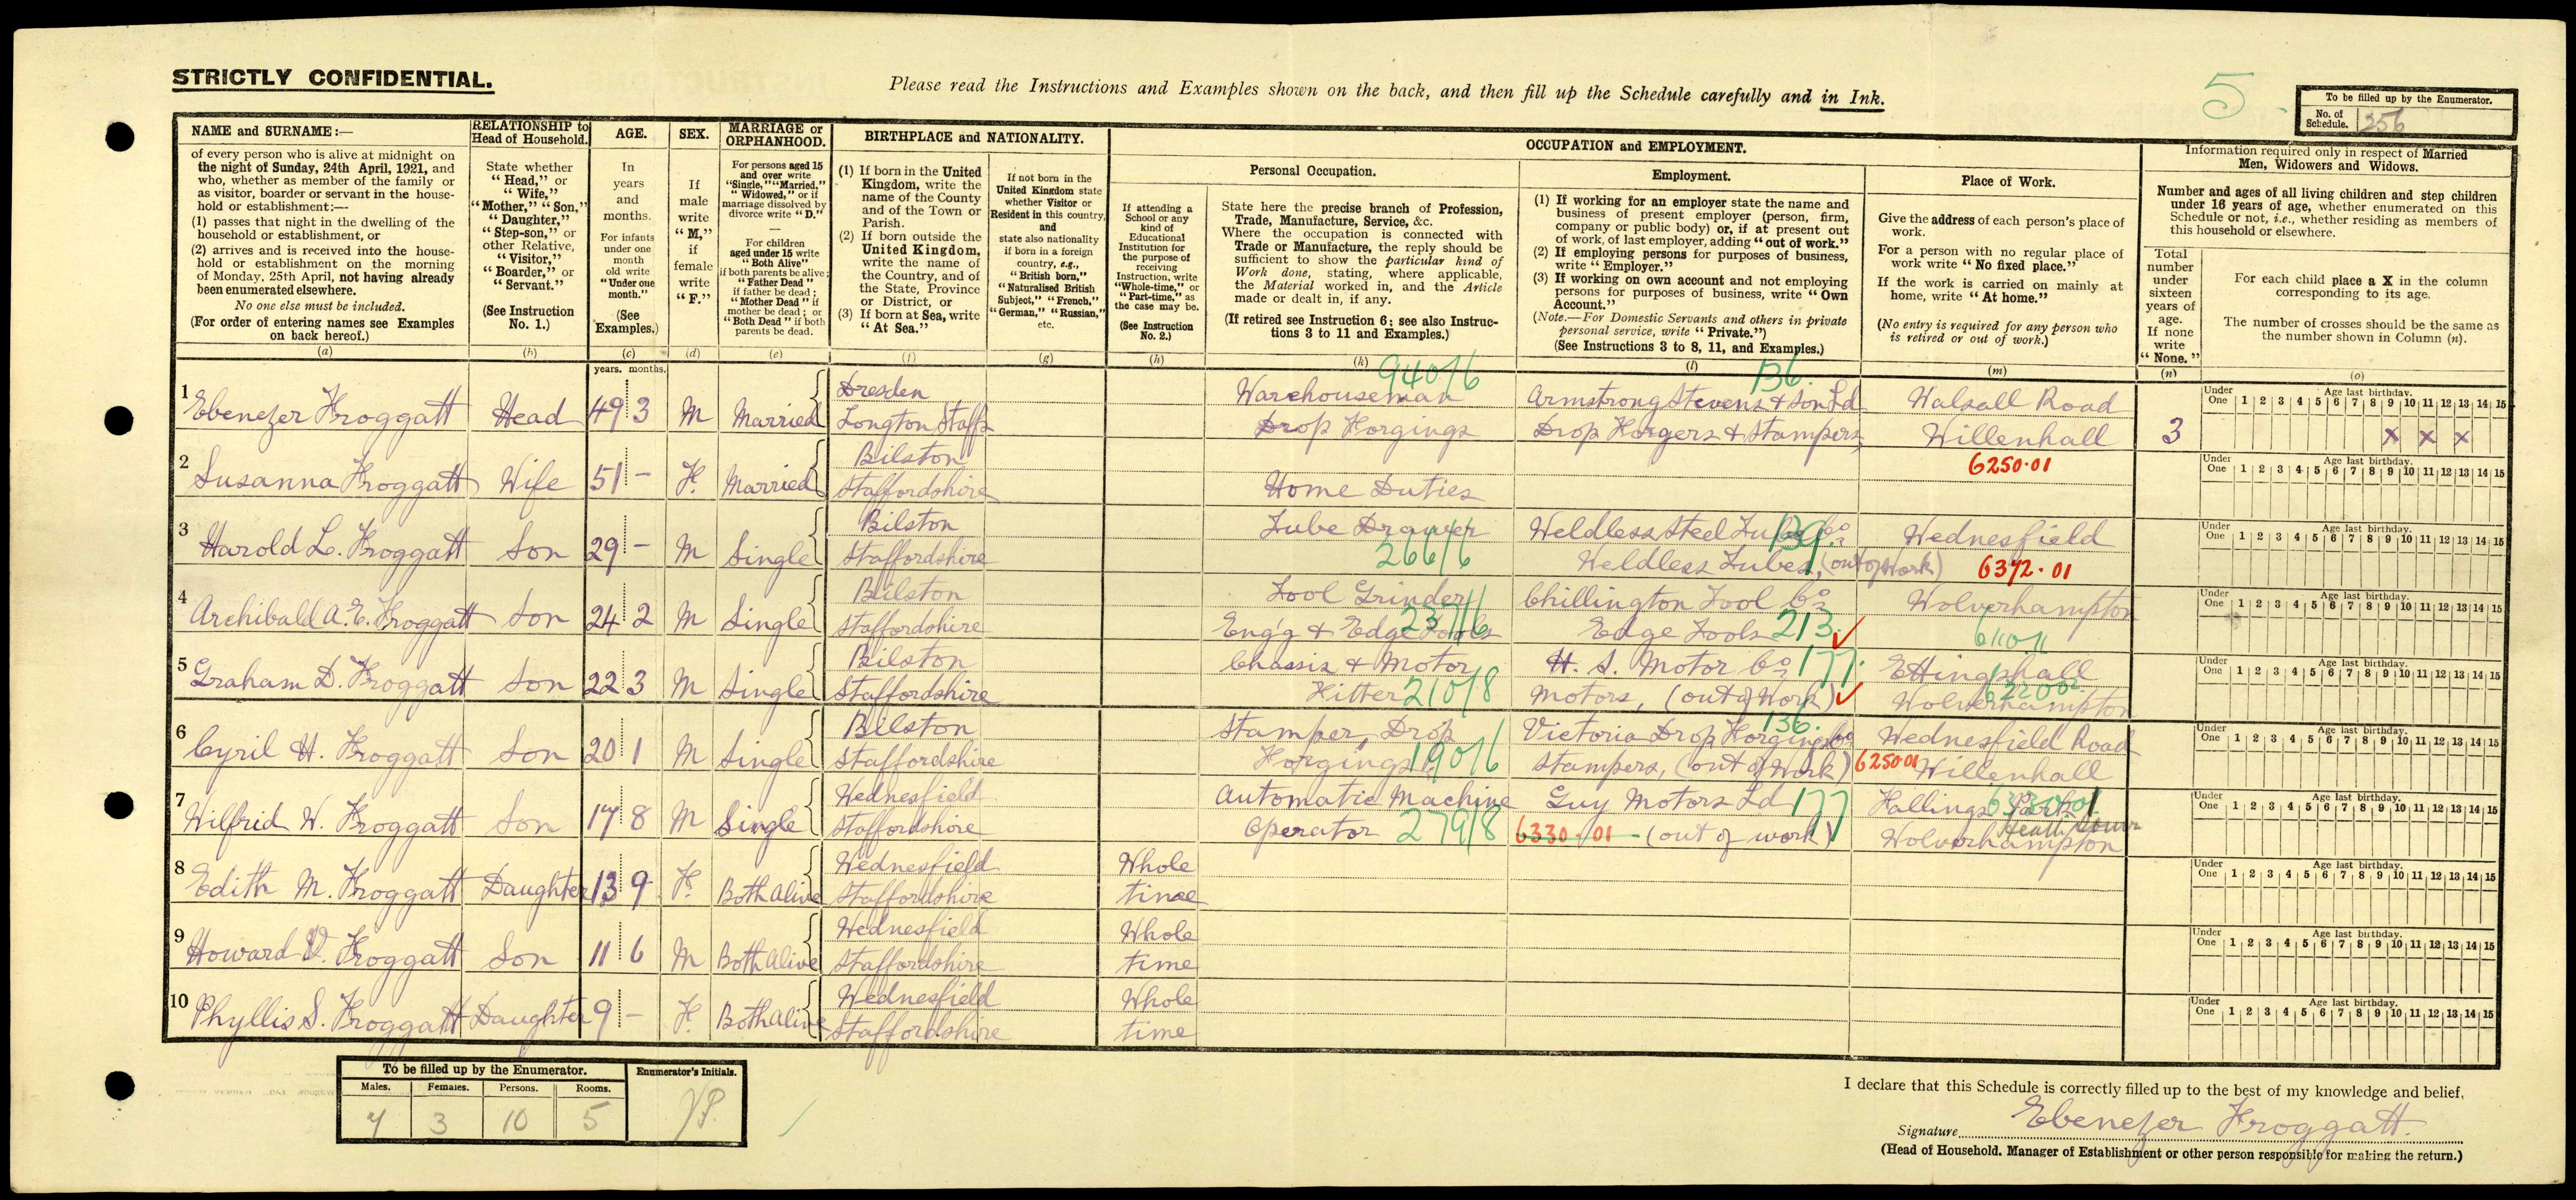 STRICTLY CONFIDENTIAL.
Please read the Instructions and Examples shown on the back, and then fill up the Schedule carefully and in Ink.
5
To be filled up by the Enumerator.
No. of Schedule. 356
NAME and SURNAME:—
of every person who is alive at midnight on
the night of Sunday, 24th April, 1921, and
who, whether as member of the family or
as visitor, boarder or servant in the house-
hold or establishment:—
(1) passes that night in the dwelling of the
household or establishment, or
(2) arrives and is received into the house-
hold or establishment on the morning
of Monday, 25th April, not having already
been enumerated elsewhere.
No one else must be included.
(For order of entering names see Examples
on back hereof.)
(a)
RELATIONSHIP to
Head of Household.
State whether
"Head," or
"Wife,"
"Mother," "Son,"
"Daughter,"
"Step-son," or
other Relative,
"Visitor,"
"Boarder," or
"Servant."
(See Instruction
No. 1.)
(b)
AGE.
In
years
and
months.
For infants
under one
month
old write
"Under one
month."
(See
Examples.)
(c)
years. months.
SEX.
If
male
write
"M,"
if
female
write
"F."
(d)
MARRIAGE or
ORPHANHOOD.
For persons aged 15
and over write
"Single," "Married,"
"Widowed," or if
marriage dissolved by
divorce write "D."
—
For children
aged under 15 write
"Both Alive"
if both parents be alive;
"Father Dead"
if father be dead;
"Mother Dead" if
mother be dead; or
"Both Dead" if both
parents be dead.
(e)
BIRTHPLACE and NATIONALITY.
(1) If born in the United
Kingdom, write the
name of the County
and of the Town or
Parish.
(2) If born outside the
United Kingdom,
write the name of
the Country, and of
the State, Province
or District, or
(3) If born at Sea, write
"At Sea."
(f)
If not born in the
United Kingdom state
whether Visitor or
Resident in this country,
and
state also nationality
if born in a foreign
country, e.g.,
"British born,"
"Naturalised British
Subject," "French,"
"German," "Russian,"
etc.
(g)
OCCUPATION and EMPLOYMENT.
If attending a
School or any
kind of
Educational
Institution for
the purpose of
receiving
Instruction, write
"Whole-time," or
"Part-time," as
the case may be.
(See Instruction
No. 2.)
(h)
Personal Occupation.
State here the precise branch of Profession,
Trade, Manufacture, Service, &c.
Where the occupation is connected with
Trade or Manufacture, the reply should be
sufficient to show the particular kind of
Work done, stating, where applicable,
the Material worked in, and the Article
made or dealt in, if any.
(If retired see Instruction 6; see also Instruc-
tions 3 to 11 and Examples.)
(k)
Employment.
(1) If working for an employer state the name and
business of present employer (person, firm,
company or public body) or, if at present out
of work, of last employer, adding "out of work."
(2) If employing persons for purposes of business,
write "Employer."
(3) If working on own account and not employing
persons for purposes of business, write "Own
Account."
(Note.—For Domestic Servants and others in private
personal service, write "Private.")
(See Instructions 3 to 8, 11, and Examples.)
(l)
Place of Work.
Give the address of each person's place of
work.
For a person with no regular place of
work write "No fixed place."
If the work is carried on mainly at
home, write "At home."
(No entry is required for any person who
is retired or out of work.)
(m)
Information required only in respect of Married
Men, Widowers and Widows.
Number and ages of all living children and step children
under 16 years of age, whether enumerated on this
Schedule or not, i.e., whether residing as members of
this household or elsewhere.
Total
number
under
sixteen
years of
age.
If none
write
"None."
(n)
For each child place a X in the column
corresponding to its age.
The number of crosses should be the same as
the number shown in Column (n).
(o)
1 Ebenezer Froggatt Head 49 3 M Married Dresden Longton Staffs
Warehouseman 940/6 Drop Forgings
Armstrong Stevens & Son Ld 136. Drop Forgers & Stampers
Walsall Road Willenhall 6250·01
3
Under One 1 2 3 4 5 6 7 8 9 10 11 12 13 14 15
Age last birthday.
x x x
2 Susanna Froggatt Wife 51 - F. Married Bilston Staffordshire
Home Duties
Under One 1 2 3 4 5 6 7 8 9 10 11 12 13 14 15
Age last birthday.
3 Harold L. Froggatt Son 29 - M Single Bilston Staffordshire
Tube Drawer 266/6
Weldless Steel Tube Co 139 Weldless Tubes, (out of work)
Wednesfield 6372·01
Under One 1 2 3 4 5 6 7 8 9 10 11 12 13 14 15
Age last birthday.
4 Archibald A. E. Froggatt Son 24 2 M Single Bilston Staffordshire
Tool Grinder Eng'g & Edge Tools 237/6
Chillington Tool Co Edge Tools 213.
Wolverhampton
Under One 1 2 3 4 5 6 7 8 9 10 11 12 13 14 15
Age last birthday.
5 Graham D. Froggatt Son 22 3 M Single Bilston Staffordshire
Chassis & Motor Fitter 210/8
H. S. Motor Co 177. Motors, (out of Work)
Ettingshall Wolverhampton
Under One 1 2 3 4 5 6 7 8 9 10 11 12 13 14 15
Age last birthday.
6 Cyril H. Froggatt Son 20 1 M Single Bilston Staffordshire
Stamper, Drop Forgings 190/6
Victoria Drop Forgings Co 136. Stampers, (out of Work)
Wednesfield Road 6250·01 Willenhall
Under One 1 2 3 4 5 6 7 8 9 10 11 12 13 14 15
Age last birthday.
7 Wilfrid W. Froggatt Son 17 8 M Single Wednesfield Staffordshire
Automatic Machine Operator 279/8
Guy Motors Ld 177 6330·01 - (out of work)
Fallings Park Wolverhampton
Under One 1 2 3 4 5 6 7 8 9 10 11 12 13 14 15
Age last birthday.
8 Edith M. Froggatt Daughter 13 9 F. Both Alive Wednesfield Staffordshire Whole time
Under One 1 2 3 4 5 6 7 8 9 10 11 12 13 14 15
Age last birthday.
9 Howard V. Froggatt Son 11 6 M Both Alive Wednesfield Staffordshire Whole time
Under One 1 2 3 4 5 6 7 8 9 10 11 12 13 14 15
Age last birthday.
10 Phyllis S. Froggatt Daughter 9 - F. Both Alive Wednesfield Staffordshire Whole time
Under One 1 2 3 4 5 6 7 8 9 10 11 12 13 14 15
Age last birthday.
To be filled up by the Enumerator.
Males. Females. Persons. Rooms.
7 3 10 5
Enumerator's Initials.
I declare that this Schedule is correctly filled up to the best of my knowledge and belief,
Signature Ebenezer Froggatt.
(Head of Household, Manager of Establishment or other person responsible for making the return.)